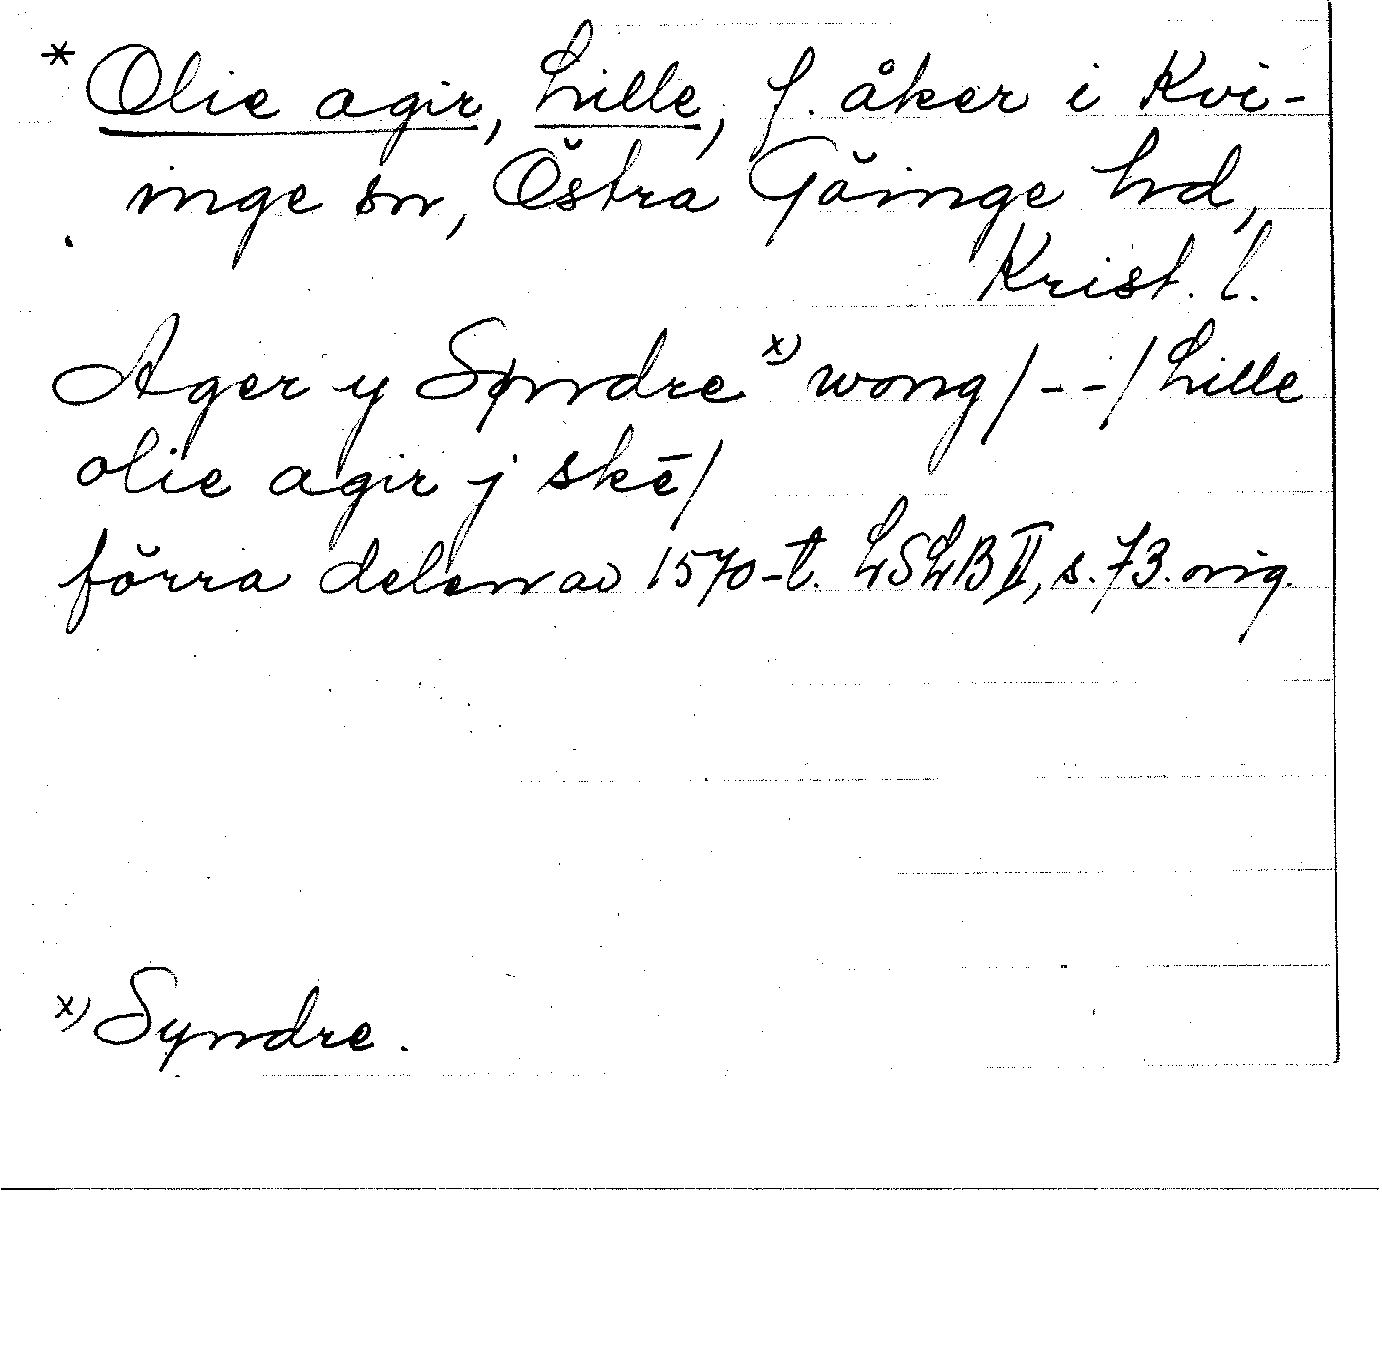 * Olie agir, Lille, f. åker i Kvi-
inge sn, Östra Göinge hd,
Krist. l.
Ager y Sỿndre x) wong/--/Lille
olie agir j skē/
förra delen av 1570-t. LSLB II, s. 73. orig.
x) Syndre.